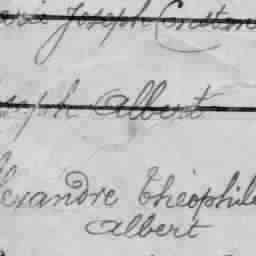 Joseph
Joseph Albert
Alexandre Théophile
Albert